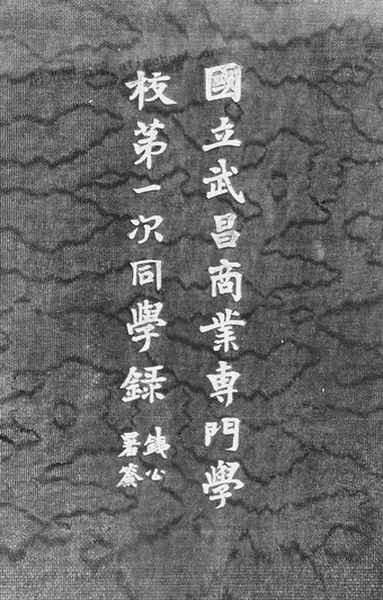 國立武昌商業專門學
校第一次同學録
鐵公
署簽